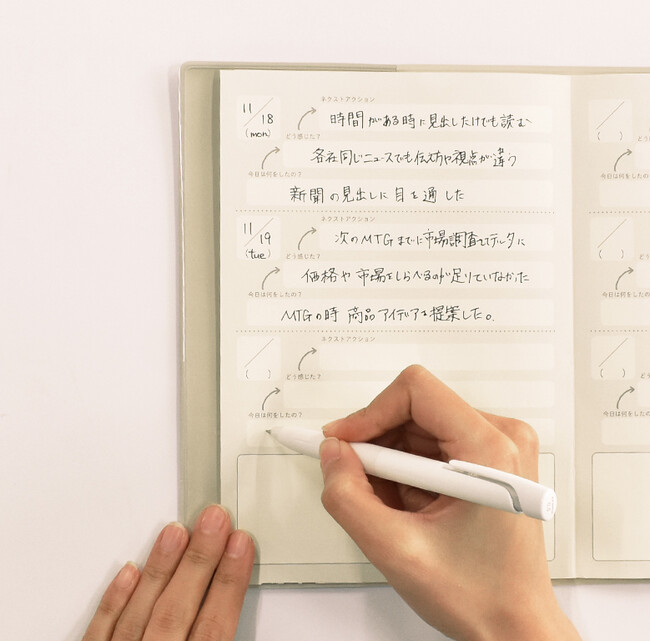 ネクストアクション
11/18
(mon)
時間がある時に見出しだけでも読む
どう感じた?
各社同じニュースでも伝え方や視点が違う
今日は何をしたの?
新聞の見出しに目を通した
ネクストアクション
11/19
(tue)
次のMTGまでに市場調査してデータに
どう感じた?
価格や市場をしらべるのが足りていなかった
今日は何をしたの?
MTGの時 商品アイデアを提案した。
ネクストアクション
( )
どう感じた?
今日は何をしたの?
( )
今日は何をしたの?
( )
今日は何をしたの?
( )
今日は何をしたの?